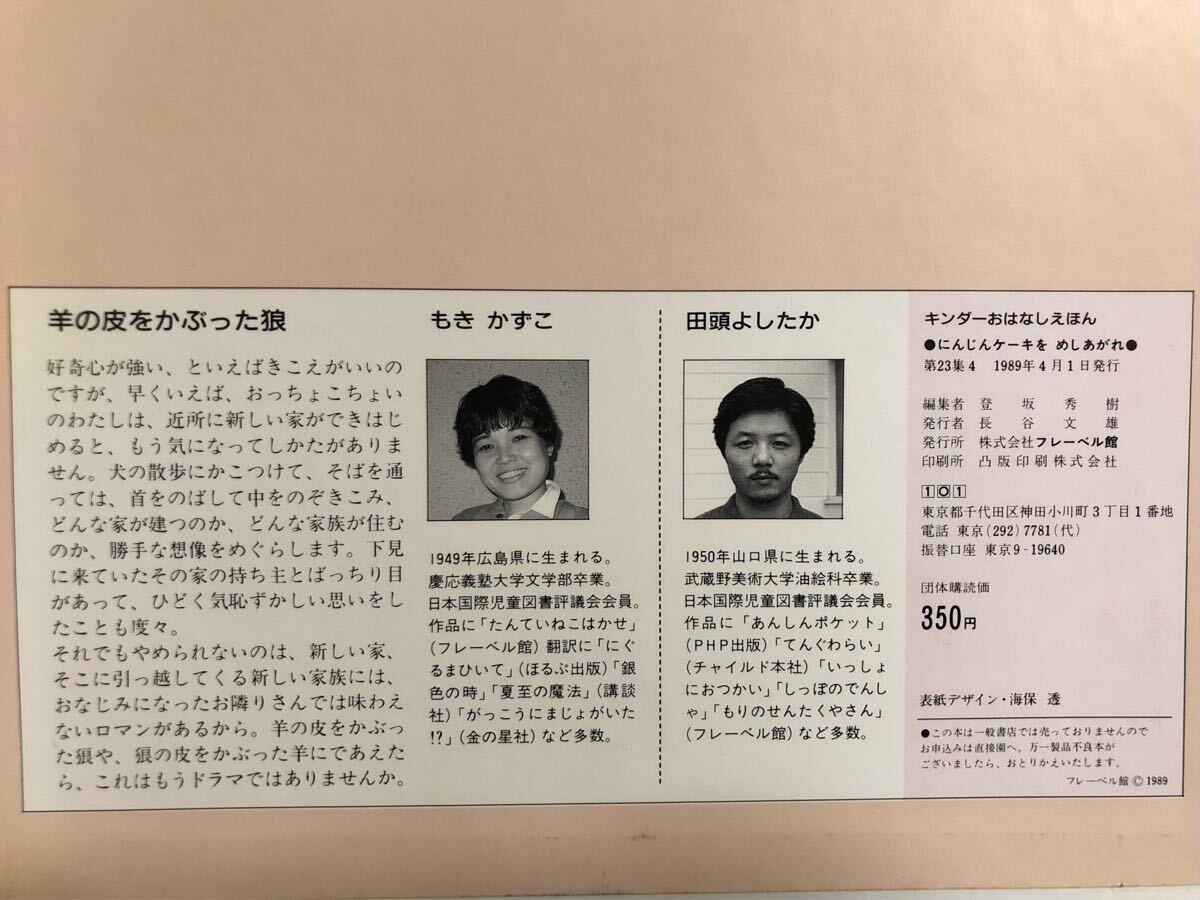 羊の皮をかぶった狼
好奇心が強い、といえばきこえがいいの
ですが、早くいえば、おっちょこちょい
のわたしは、近所に新しい家ができはじ
めると、もう気になってしかたがありま
せん。犬の散歩にかこつけて、そばを通
っては、首をのばして中をのぞきこみ、
どんな家が建つのか、どんな家族が住む
のか、勝手な想像をめぐらします。下見
に来ていたその家の持ち主とばっちり目
があって、ひどく気恥ずかしい思いをし
たことも度々。
それでもやめられないのは、新しい家、
そこに引っ越してくる新しい家族には、
おなじみになったお隣りさんでは味わえ
ないロマンがあるから。羊の皮をかぶっ
た狼や、狼の皮をかぶった羊にであえた
ら、これはもうドラマではありませんか。
もき かずこ
1949年広島県に生まれる。
慶応義塾大学文学部卒業。
日本国際児童図書評議会会員。
作品に「たんていねこはかせ」
(フレーベル館)翻訳に「にぐ
るまひいて」(ほるぷ出版)「銀
色の時」「夏至の魔法」(講談
社)「がっこうにまじょがいた
!?」(金の星社)など多数。
田頭よしたか
1950年山口県に生まれる。
武蔵野美術大学油絵科卒業。
日本国際児童図書評議会会員。
作品に「あんしんポケット」
(PHP出版)「てんぐわらい」
(チャイルド本社)「いっしょ
におつかい」「しっぽのでんし
ゃ」「もりのせんたくやさん」
(フレーベル館)など多数。
キンダーおはなしえほん
●にんじんケーキを めしあがれ●
第23集4 1989年4月1日発行
編集者 登坂秀樹
発行者 長谷文雄
発行所 株式会社フレーベル館
印刷所 凸版印刷株式会社
101
東京都千代田区神田小川町3丁目1番地
電話 東京(292)7781(代)
振替口座 東京9-19640
団体購読価
350円
表紙デザイン・海保 透
●この本は一般書店では売っておりませんので
お申込みは直接園へ。万一製品不良本が
ございましたら、おとりかえいたします。
フレーベル館 © 1989